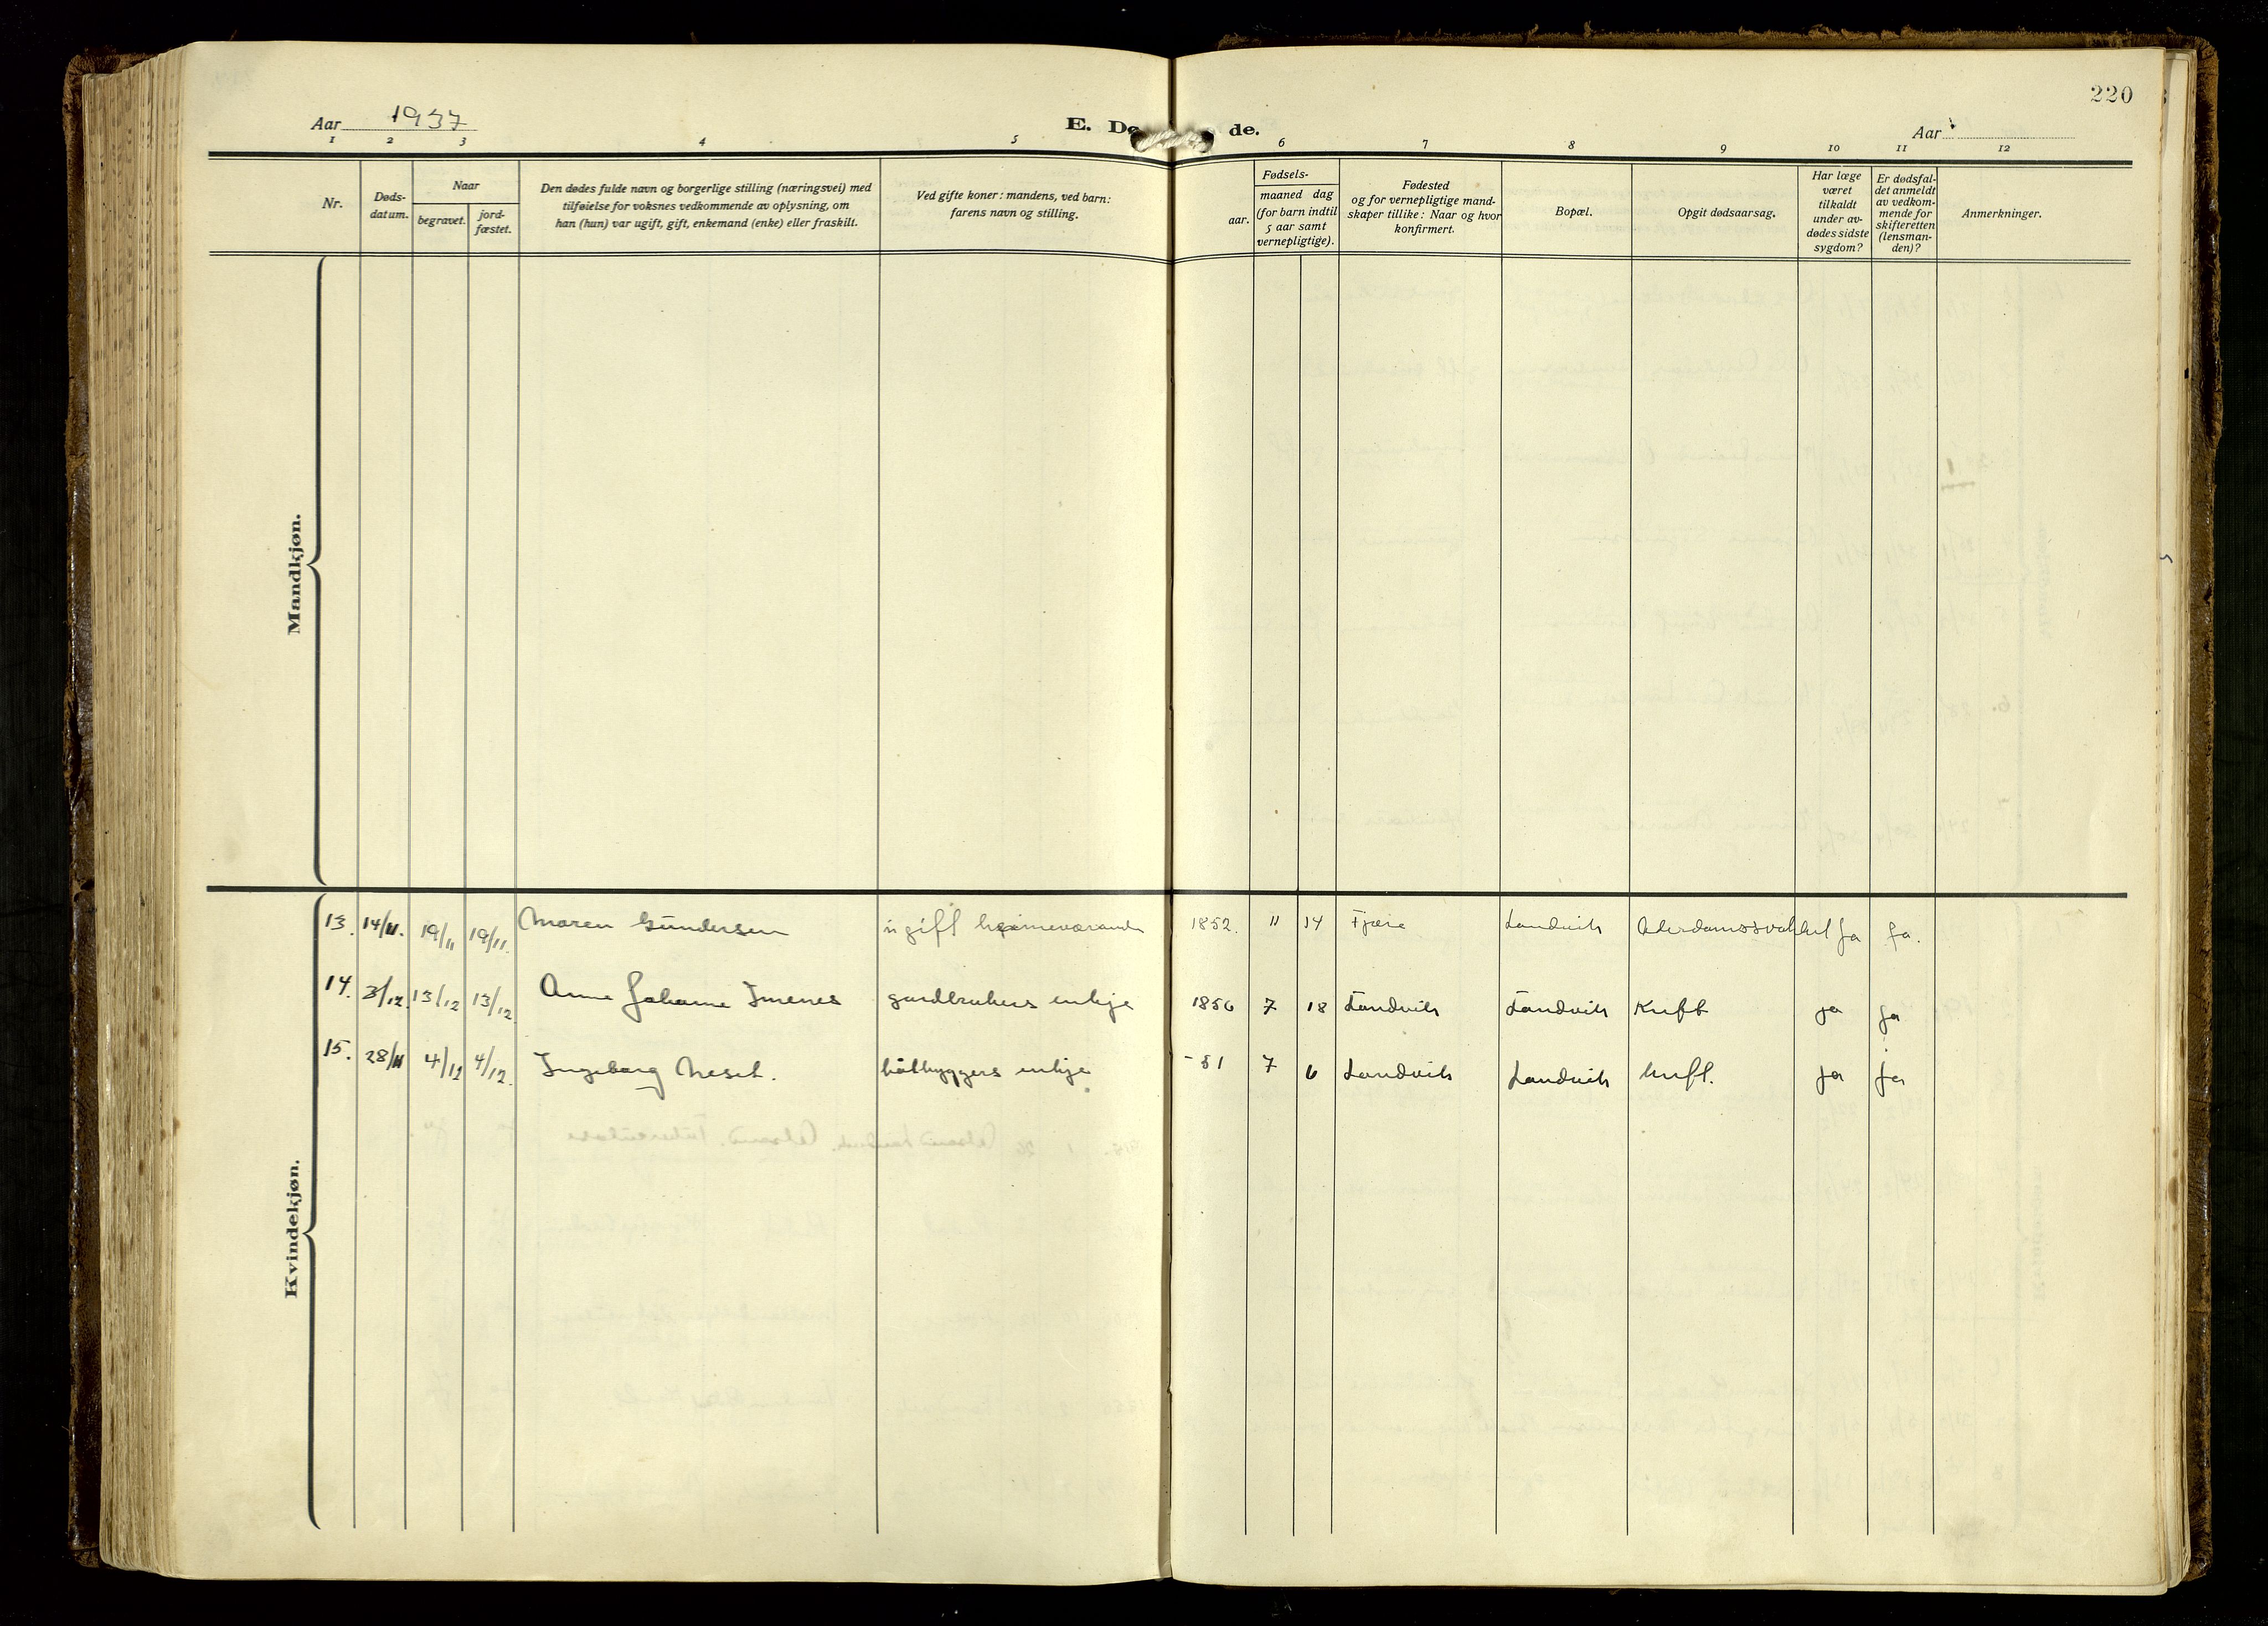 220
Aar 1937
E. Dø de.
Aar
1 2 3 4 5 6 7 8 9 10 11 12
Nr.
Døds-
datum.
Naar
begravet.
jord-
fæstet.
Den dødes fulde navn og borgerlige stilling (næringsvei) med
tilføielse for voksnes vedkommende av oplysning, om
han (hun) var ugift, gift, enkemand (enke) eller fraskilt.
Ved gifte koner: mandens, ved barn:
farens navn og stilling.
Fødsels-
aar.
maaned dag
(for barn indtil
5 aar samt
vernepligtige).
Fødested
og for vernepligtige mand-
skaper tillike: Naar og hvor
konfirmert.
Bopæl.
Opgit dødsaarsag.
Har læge
været
tilkaldt
under av-
dødes sidste
sygdom?
Er dødsfal-
det anmeldt
av vedkom-
mende for
skifteretten
(lensman-
den)?
Anmerkninger.
Mandkjøn.
13. 14/11. 19/11 19/11. Maren Gundersen ugift heimeværande 1852. 11 14 Fjære Landvik Alerdomssvakhet ja ja.
14. 3/12. 13/12 13/12. Anne Johanne Imenes gardbrukers enkje 1856 7 18 Landvik Landvik Kreft ja ja
15. 28/11 4/12 4/12. Ingeborg Neset. båtbyggers enkje -51 7 6 Landvik Landvik kreft. ja ja
Kvindekjøn.